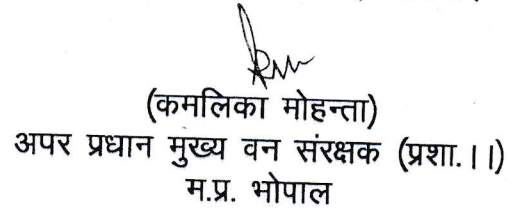 (कमलिका मोहन्ता)
अपर प्रधान मुख्य वन संरक्षक (प्रशा.।।)
म.प्र. भोपाल